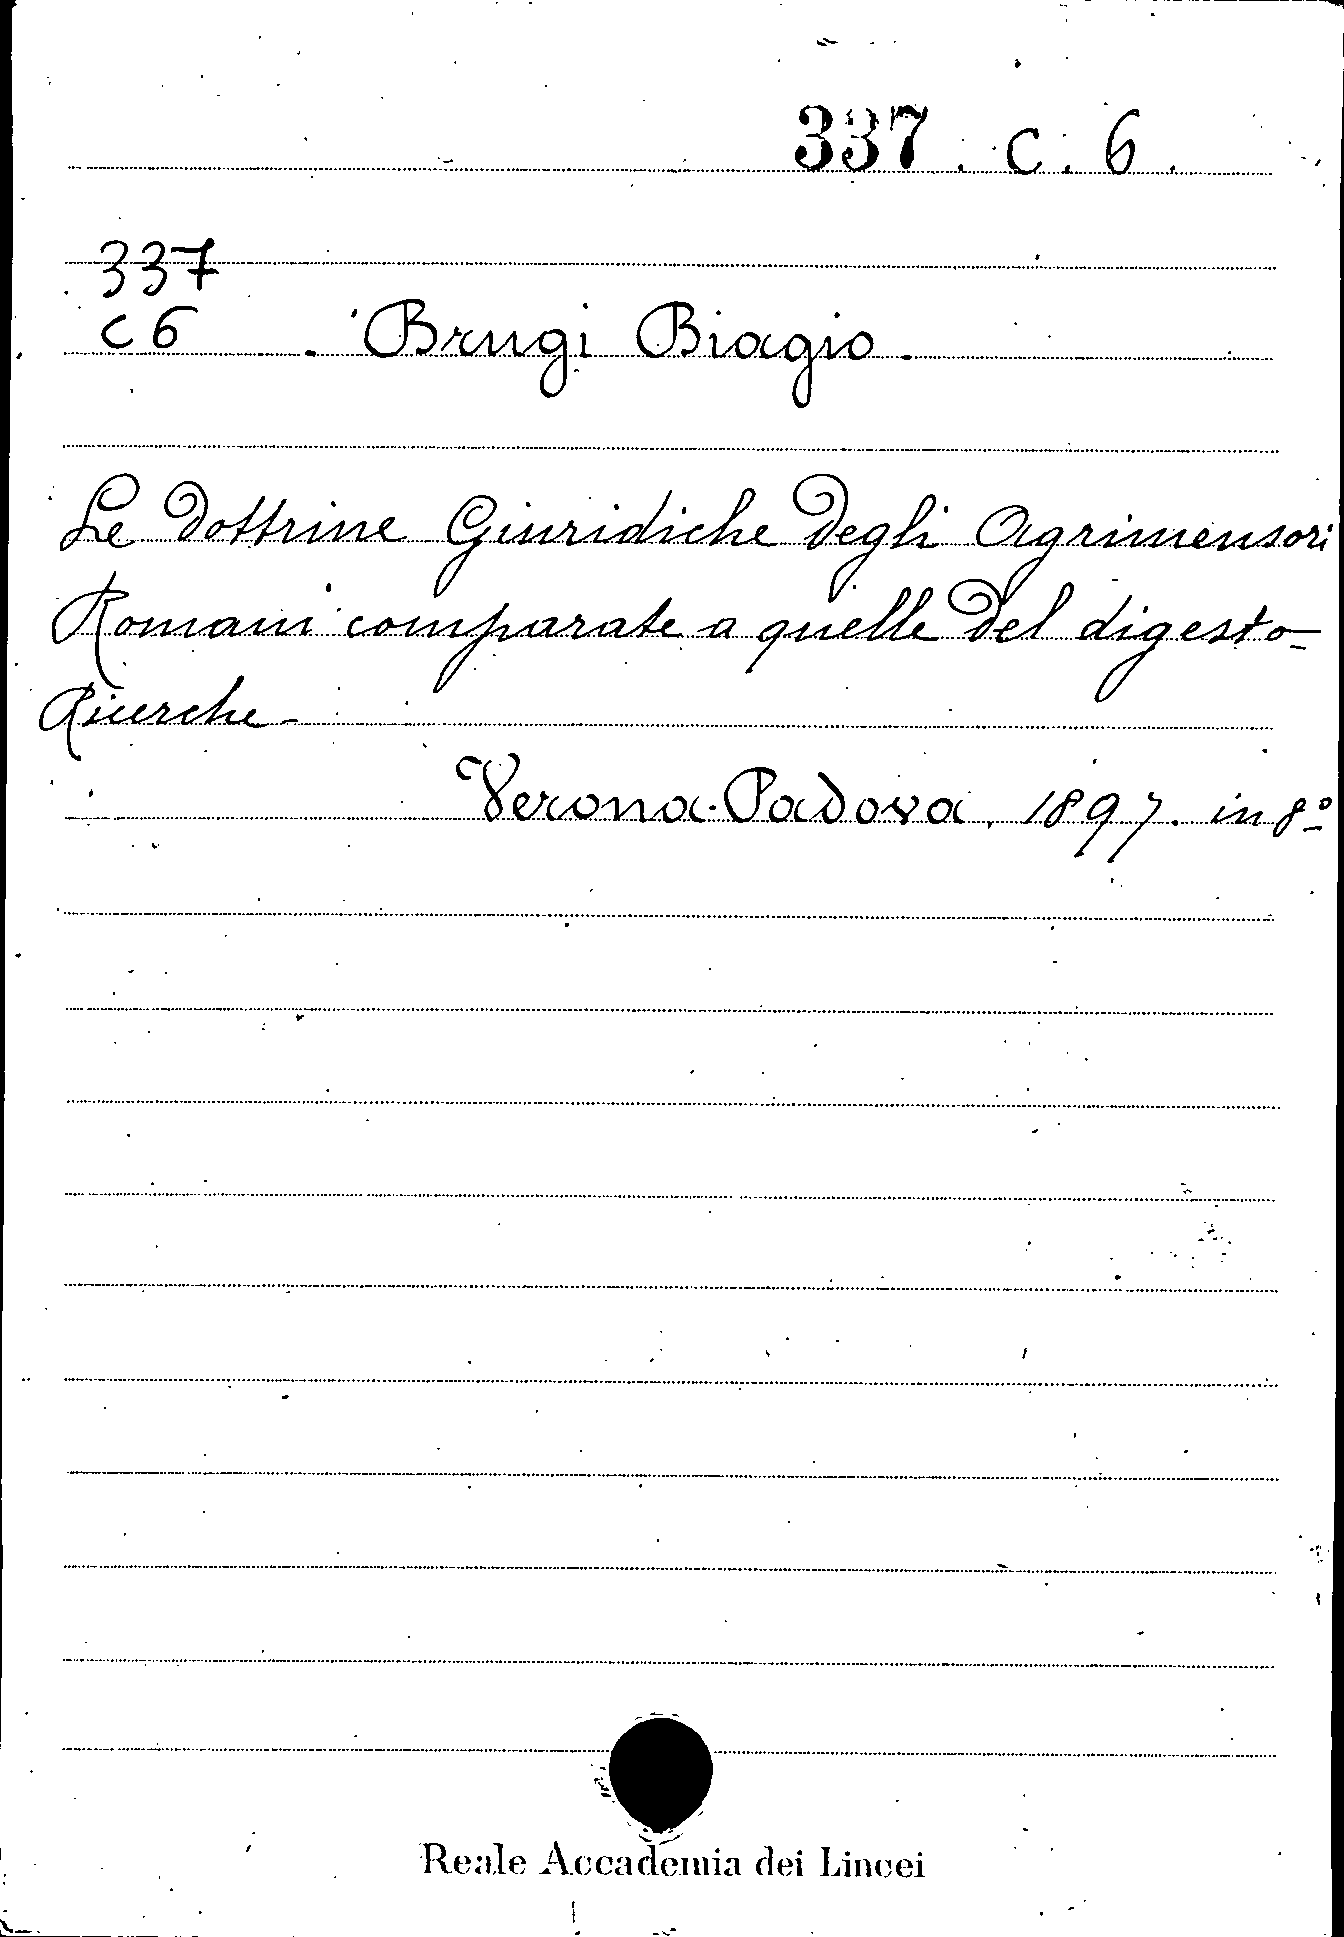 337. C. 6.
337
C 6
Brugi Biagio.
Le Dottrine Giuridiche Degli Agrimensori
Romani comparate a quelle Del digesto-
Ricerche-
Verona-Padova, 1897. in 8º
Reale Accademia dei Lincei